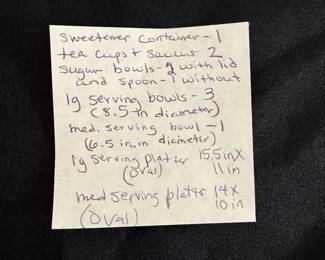 sweetener container - 1
tea cups + saucers 2
sugar bowls - 2 with lid
and spoon - 1 without
lg serving bowls - 3
(8.5 in diameter)
med. serving bowl - 1
(6.5 in. in diameter)
lg serving platter 15.5 in X
(oval) 11 in
med serving platter 14 x
(oval) 10 in